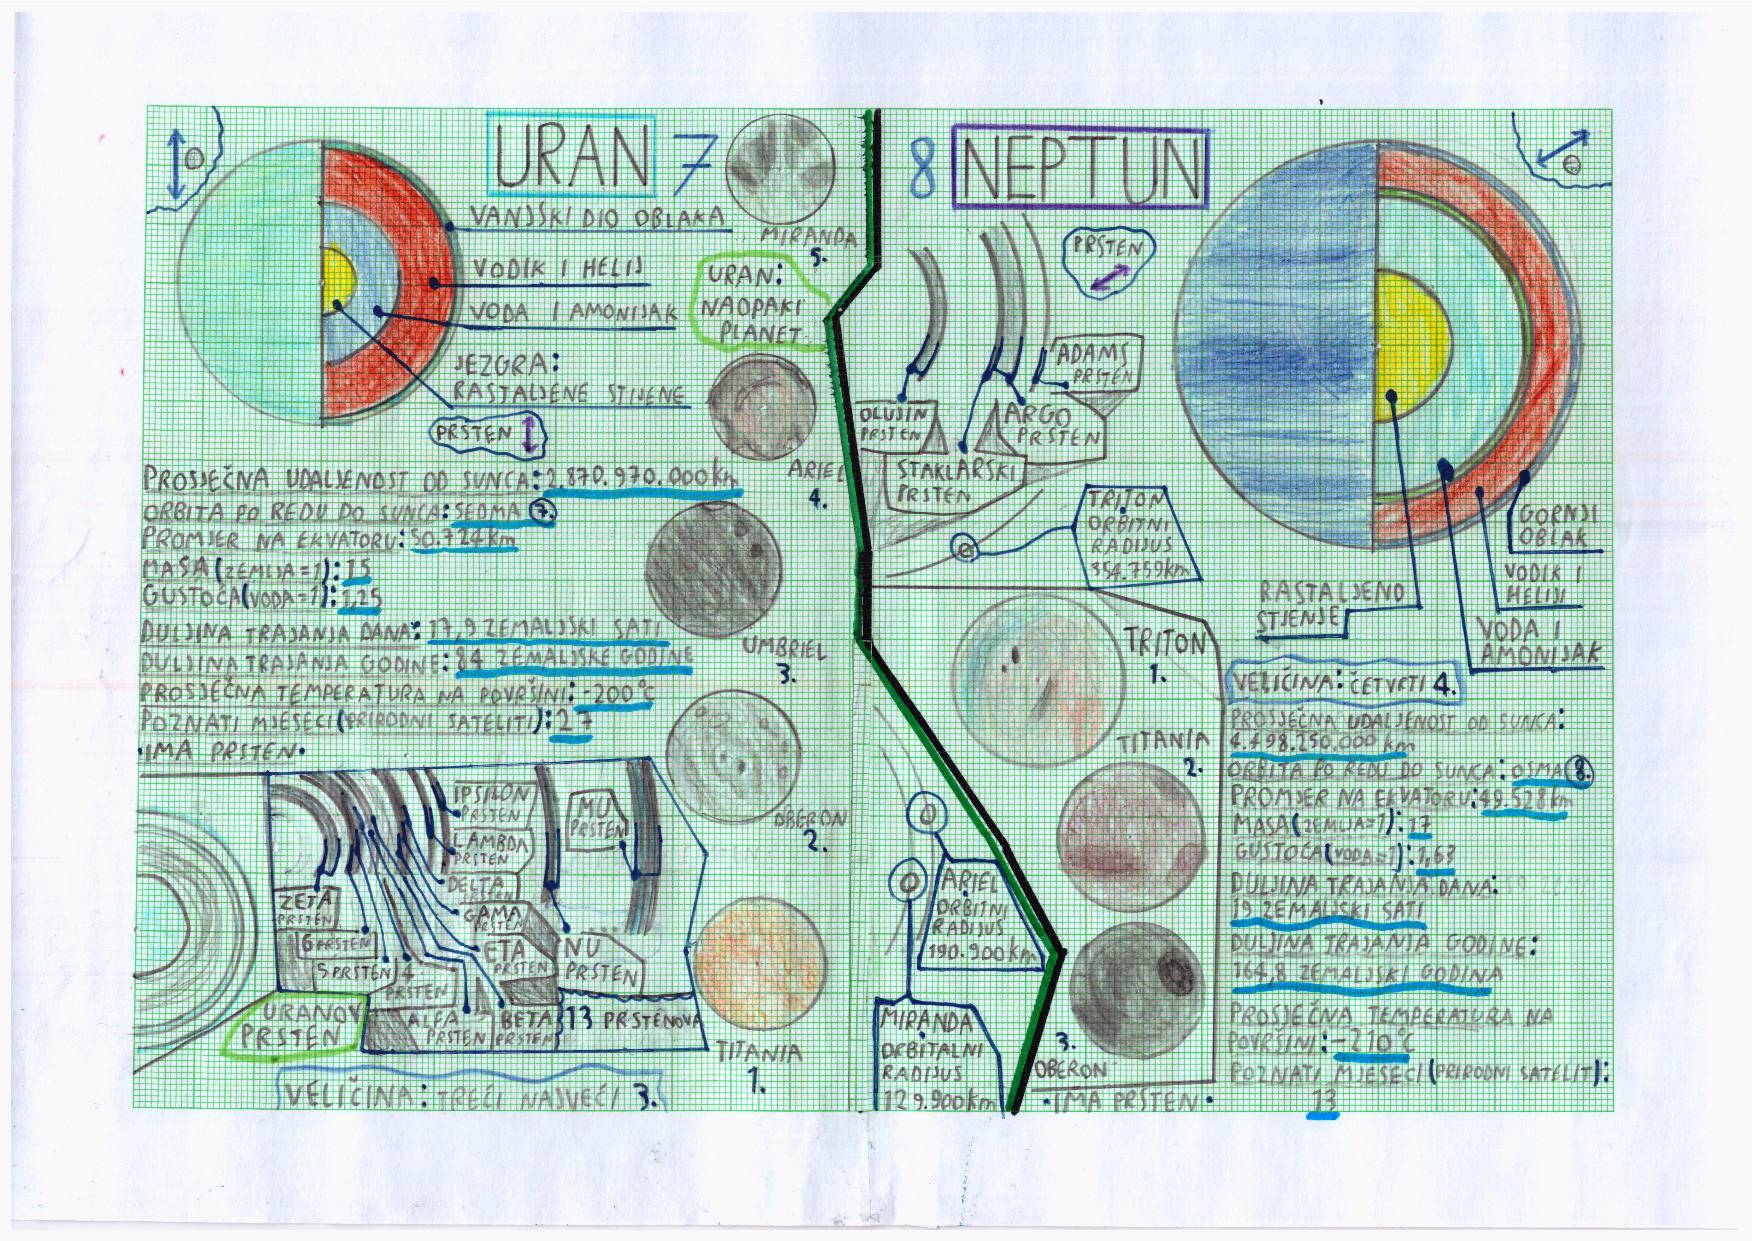 URAN 7
VANJSKI DIO OBLAKA
VODIK I HELIJ
VODA I AMONIJAK
JEZGRA:
RASTALJENE STIJENE
PRSTEN
MIRANDA
5.
URAN:
NAOPAKI
PLANET
ARIEL
4.
UMBRIEL
3.
OBERON
2.
TITANIA
1.
PROSJEČNA UDALJENOST OD SUNCA: 2.870.970.000 km
ORBITA PO REDU DO SUNCA: SEDMA 7.
PROMJER NA EKVATORU: 50.724 km
MASA (ZEMLJA=1): 15
GUSTOĆA (VODA=1): 1,25
DULJINA TRAJANJA DANA: 17,9 ZEMALJSKI SATI
DULJINA TRAJANJA GODINE: 84 ZEMALJSKE GODINE
PROSJEČNA TEMPERATURA NA POVRŠINI: -200°C
POZNATI MJESECI (PRIRODNI SATELITI): 27
•IMA PRSTEN•
IPSILON
PRSTEN
LAMBDA
PRSTEN
DELTA
PRSTEN
GAMA
PRSTEN
ETA
PRSTEN
MU
PRSTEN
NU
PRSTEN
ZETA
PRSTEN
6 PRSTEN
5 PRSTEN
4
PRSTEN
ALFA
PRSTEN
BETA
PRSTEN
13 PRSTENOVA
URANOV
PRSTEN
VELIČINA: TREĆI NAJVEĆI 3.
8 NEPTUN
PRSTEN
ADAMS
PRSTEN
OLUJIN
PRSTEN
ARGO
PRSTEN
STAKLARSKI
PRSTEN
TRITON
ORBITNI
RADIJUS
354.759km
GORNJI
OBLAK
VODIK I
HELIJI
VODA I
AMONIJAK
RASTALJENO
STJENJE
TRITON
1.
TITANIA
2.
3.
OBERON
ARIEL
ORBITNI
RADIJUS
190.900km
MIRANDA
ORBITALNI
RADIJUS
129.900km
VELIČINA: ČETVRTI 4.
PROSJEČNA UDALJENOST OD SUNCA:
4.498.250.000 km
ORBITA PO REDU DO SUNCA: OSMA 8.
PROMJER NA EKVATORU: 49.528 km
MASA (ZEMLJA=1): 17
GUSTOĆA (VODA=1): 1,63
DULJINA TRAJANJA DANA:
19 ZEMALJSKI SATI
DULJINA TRAJANJA GODINE:
164,8 ZEMALJSKI GODINA
PROSJEČNA TEMPERATURA NA
POVRŠINI: -210°C
POZNATI MJESECI (PRIRODNI SATELIT):
13
•IMA PRSTEN•